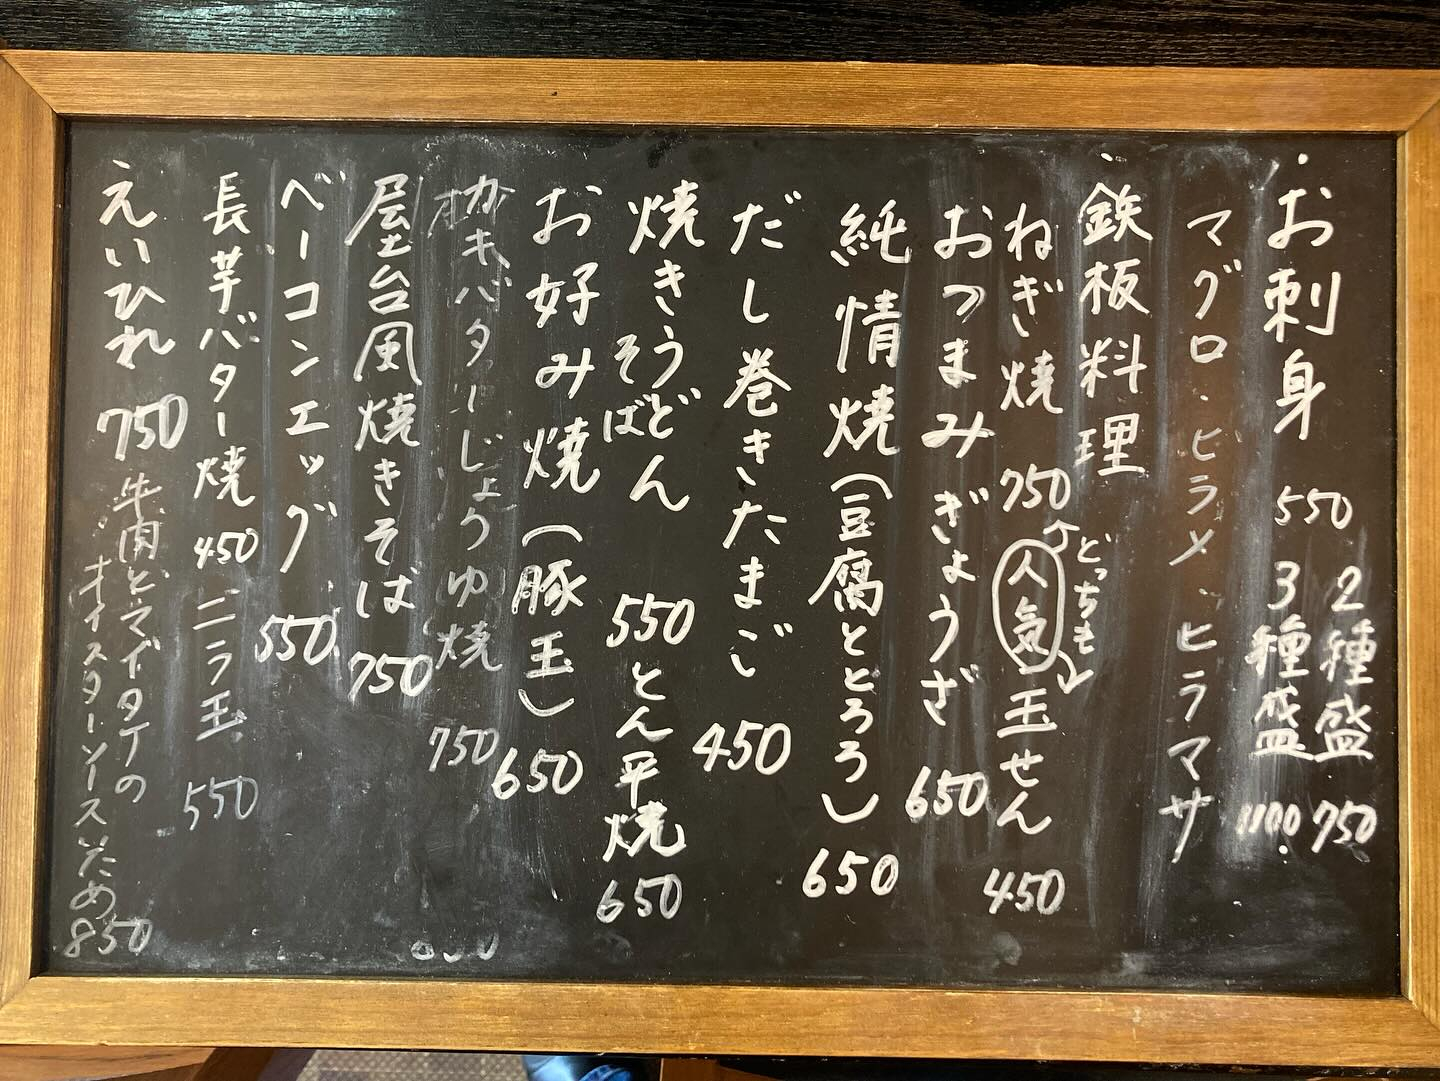 お刺身 550 2種盛 750
3種盛 1100
マグロ・ヒラメ・ヒラマサ
鉄板料理
ねぎ焼 750 人気 玉せん 450
どっちも
おつまみぎょうざ 650
純情焼(豆腐ととろろ) 650
だし巻きたまご 450
焼きうどん 550 とん平焼 650
そば
お好み焼(豚玉) 650
カキバターじょうゆ焼 750
屋台風焼きそば 750
ベーコンエッグ 550
長芋バター焼 450 ニラ玉 550
えいひれ 750 牛肉とマイタケの
オイスターソースいため 850